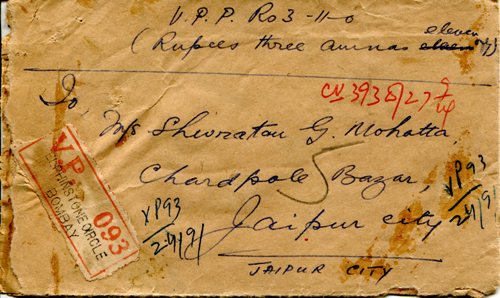 V.P.P. Rs 3-11-0
(Rupees three annas eleven only)
CV 3938/27
To,
M/s Shevratan G. Mohatta,
Chandpole Bazar,
Jaipur city
JAIPUR CITY
5
VP
ELPHINSTONE CIRCLE
BOMBAY
093
VP93
24/9/
VP93
24/9/